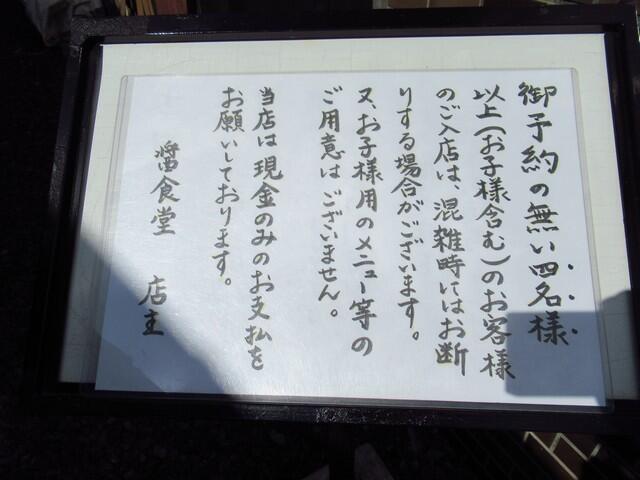 御予約の無い四名様
以上(お子様含む)のお客様
のご入店は、混雑時にはお断
りする場合がございます。
又、お子様用のメニュー等の
ご用意はございません。
当店は現金のみのお支払を
お願いしております。
醤食堂 店主